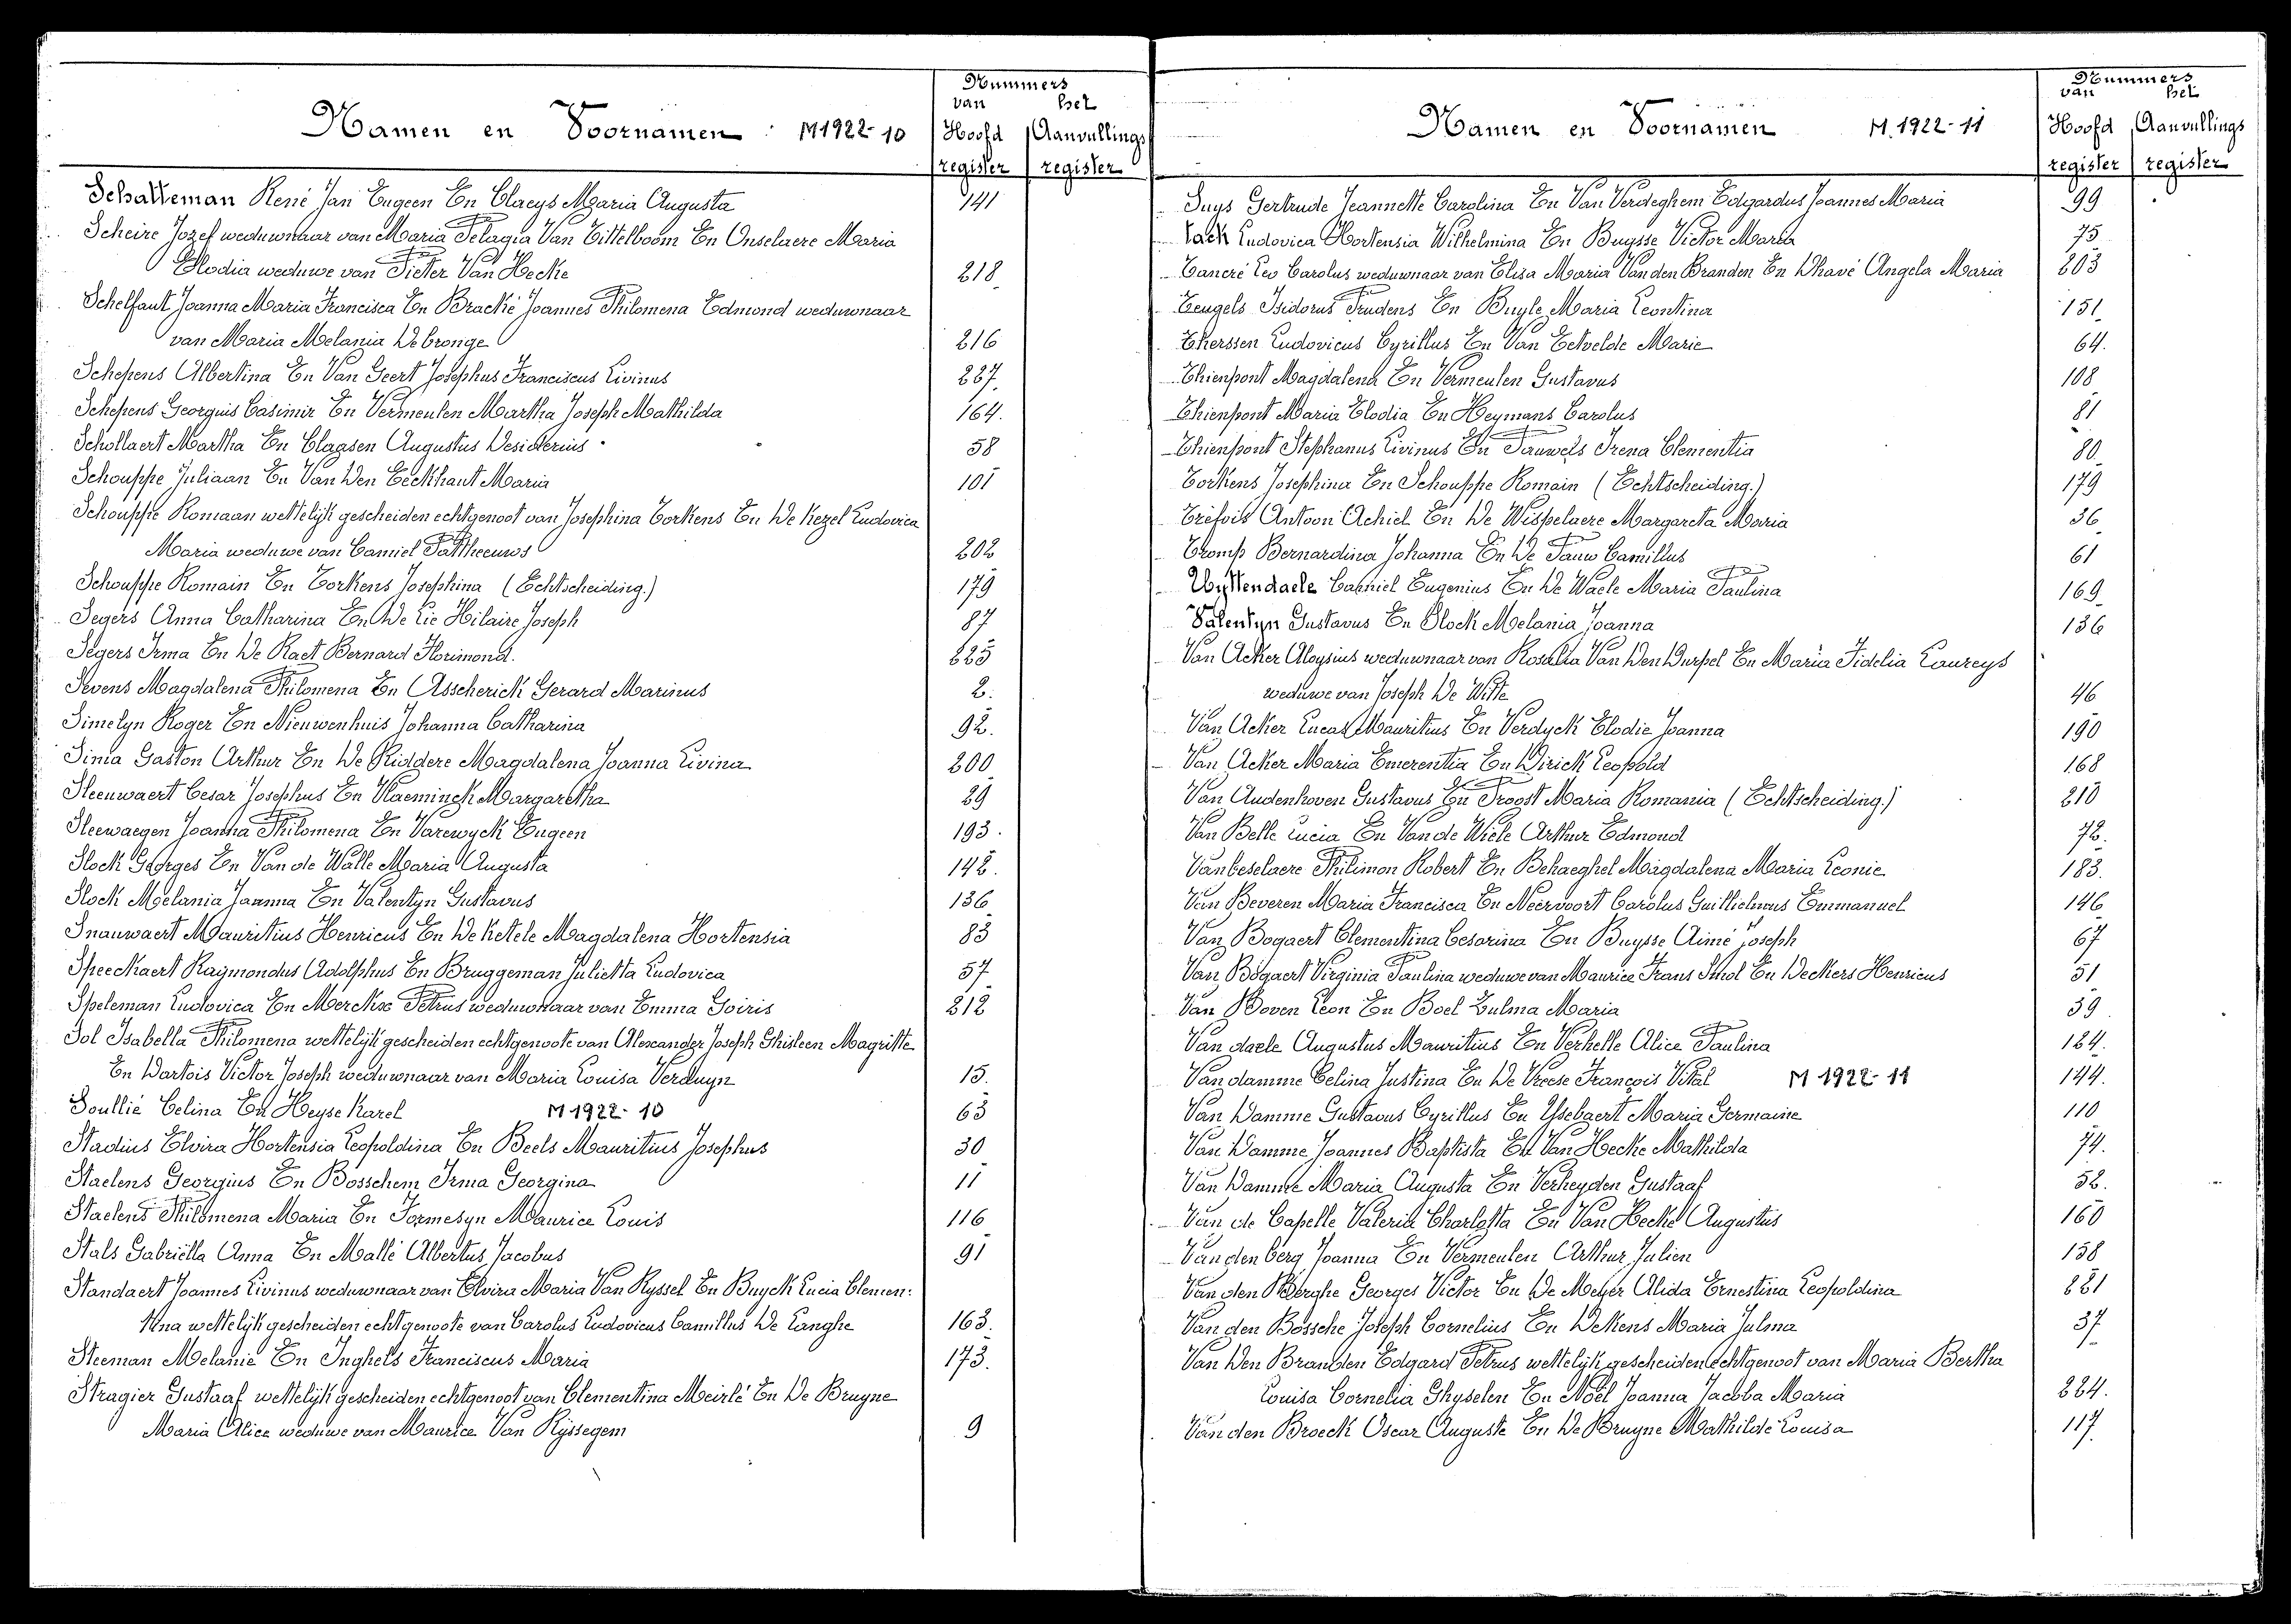 Namen en Voornamen M1922-10
Nummers
van het
Hoofd Aanvullings
register register
Schatteman René Jan Eugeen En Claeys Maria Augusta 141
Scheire Jozef weduwnaar van Maria Pelagia Van Eittelboom En Onselaere Maria
Elodia weduwe van Pieter Van Hecke 218
Schelfaut Joanna Maria Francisca En Bracké Joannes Philomena Edmond weduwnaar
van Maria Melania Debronge 216
Schepens Albertina En Van Geert Josephus Franciscus Livinus 227
Schepens Georguis Casimir En Vermeulen Martha Joseph Mathilda 164.
Schollaert Martha En Claasen Augustus Desiderius 58
Schouppe Juliaan En Van Den Eeckhaut Maria 101
Schouppe Romaan wettelijk gescheiden echtgenoot van Josephina Torkens En De Kezel Ludovica
Maria weduwe van Camiel Pattheeuws 202
Schouppe Romain En Torkens Josephina (Echtscheiding.) 179
Segers Anna Catharina En De Lie Hilaire Joseph 87
Segers Irma En De Raet Bernard Florimond. 225
Sevens Magdalena Philomena En Asscherick Gerard Marinus 2.
Simelyn Roger En Nieuwenhuis Johanna Catharina 92.
Sinia Gaston Arthur En De Riddere Magdalena Joanna Livina 200
Sleeuwaert Cesar Josephus En Vlaeminck Margaretha 29
Sleewaegen Joanna Philomena En Varewyck Eugeen 193.
Slock Georges En Van de Walle Maria Augusta 142.
Slock Melania Joanna En Valentyn Gustavus 136
Snauwaert Mauritius Henricus En De Ketele Magdalena Hortensia 83
Speeckaert Raymondus Adolphus En Bruggeman Julietta Ludovica 57
Speleman Ludovica En Merckx Petrus weduwnaar van Emma Goiris 212
Sol Isabella Philomena wettelijk gescheiden echtgenoote van Alexander Joseph Ghisleen Magritte
En Dartois Victor Joseph weduwnaar van Maria Louisa Verduyn 15.
Soullié Celina En Heyse Karel M1922-10 63
Stadius Elvira Hortensia Leopoldina En Beels Mauritius Josephus 30
Staelens Georgius En Bosschem Irma Georgina 11
Staelens Philomena Maria En Formesyn Maurice Louis 116
Stals Gabriëlla Anna En Mallé Albertus Jacobus 91
Standaert Joannes Livinus weduwnaar van Elvira Maria Van Ryssel En Buyck Lucia Clemen:
tina wettelijk gescheiden echtgenoote van Carolus Ludovicus Camillus De Langhe 163.
Steeman Melanie En Inghels Franciscus Maria 173.
Stragier Gustaaf wettelijk gescheiden echtgenoot van Clementina Meirlé En De Bruyne
Maria Alice weduwe van Maurice Van Ryssegem 9
Namen en Voornamen M.1922-11
Nummers
van het
Hoofd Aanvullings
register register
Suys Gertrude Jeannette Carolina En Van Verdeghem Edgardus Joannes Maria 99
Tack Ludovica Hortensia Wilhelmina En Buysse Victor Maria 75
Tancré Leo Carolus weduwnaar van Elisa Maria Van den Branden En Dhavé Angela Maria 203
Teugels Isidorus Prudens En Buyle Maria Leontina 151
Therssen Ludovicus Cyrillus En Van Eetvelde Marie 64.
Thienpont Magdalena En Vermeulen Gustavus 108
Thienpont Maria Elodia En Heymans Carolus 81
Thienpont Stephanus Livinus En Pauwels Irena Clementia 80
Torkens Josephina En Schouppe Romain (Echtscheiding.) 179
Tréfois Antoon Achiel En De Wispelaere Margareta Maria 36
Tromp Bernardina Johanna En De Pauw Camillus 61
Uyttendaele Camiel Eugenius En De Waele Maria Paulina 169
Valentyn Gustavus En Slock Melania Joanna 136
Van Acker Aloysius weduwnaar van Rosalia Van Den Durpel En Maria Fidelia Laureys
weduwe van Joseph De Witte 46
Van Acker Lucas Mauritius En Verdyck Elodie Joanna 190
Van Acker Maria Emerentia En Dirick Leopold 168
Van Audenhoven Gustavus En Proost Maria Romania (Echtscheiding.) 210
Van Belle Lucia En Van de Wiele Arthur Edmond 72.
Vanbeselaere Philimon Robert En Behaeghel Magdalena Maria Leonie 183.
Van Beveren Maria Francisca En Neervoort Carolus Guillielmus Emmanuel 146
Van Bogaert Clementina Cesarina En Buysse Aimé Joseph 67
Van Bogaert Virginia Paulina weduwe van Maurice Frans Smol En Deckers Henricus 51
Van Boven Leon En Boel Zulma Maria 39
Van daele Augustus Mauritius En Verhelle Alice Paulina 184.
Van damme Celina Justina En De Vreese François Vital M 1922-11 144.
Van Damme Gustavus Cyrillus En Ysebaert Maria Germaine 110
Van Damme Joannes Baptista En Van Hecke Mathilda 74.
Van Damme Maria Augusta En Verheyden Gustaaf 52.
Van de Capelle Valerie Charlotta En Van Hecke Augustus 160
Van den berg Joanna En Vermeulen Arthur Julien 158
Van den Berghe Georges Victor En De Meyer Alida Ernestina Leopoldina 221
Van den Bossche Joseph Cornelius En Dekens Maria Julma 37
Van Den Branden Edgard Petrus wettelijk gescheiden echtgenoot van Maria Bertha
Louisa Cornelia Ghyselen En Noël Joanna Jacoba Maria 224.
Van den Broeck Oscar Auguste En De Bruyne Mathilde Louisa 117.